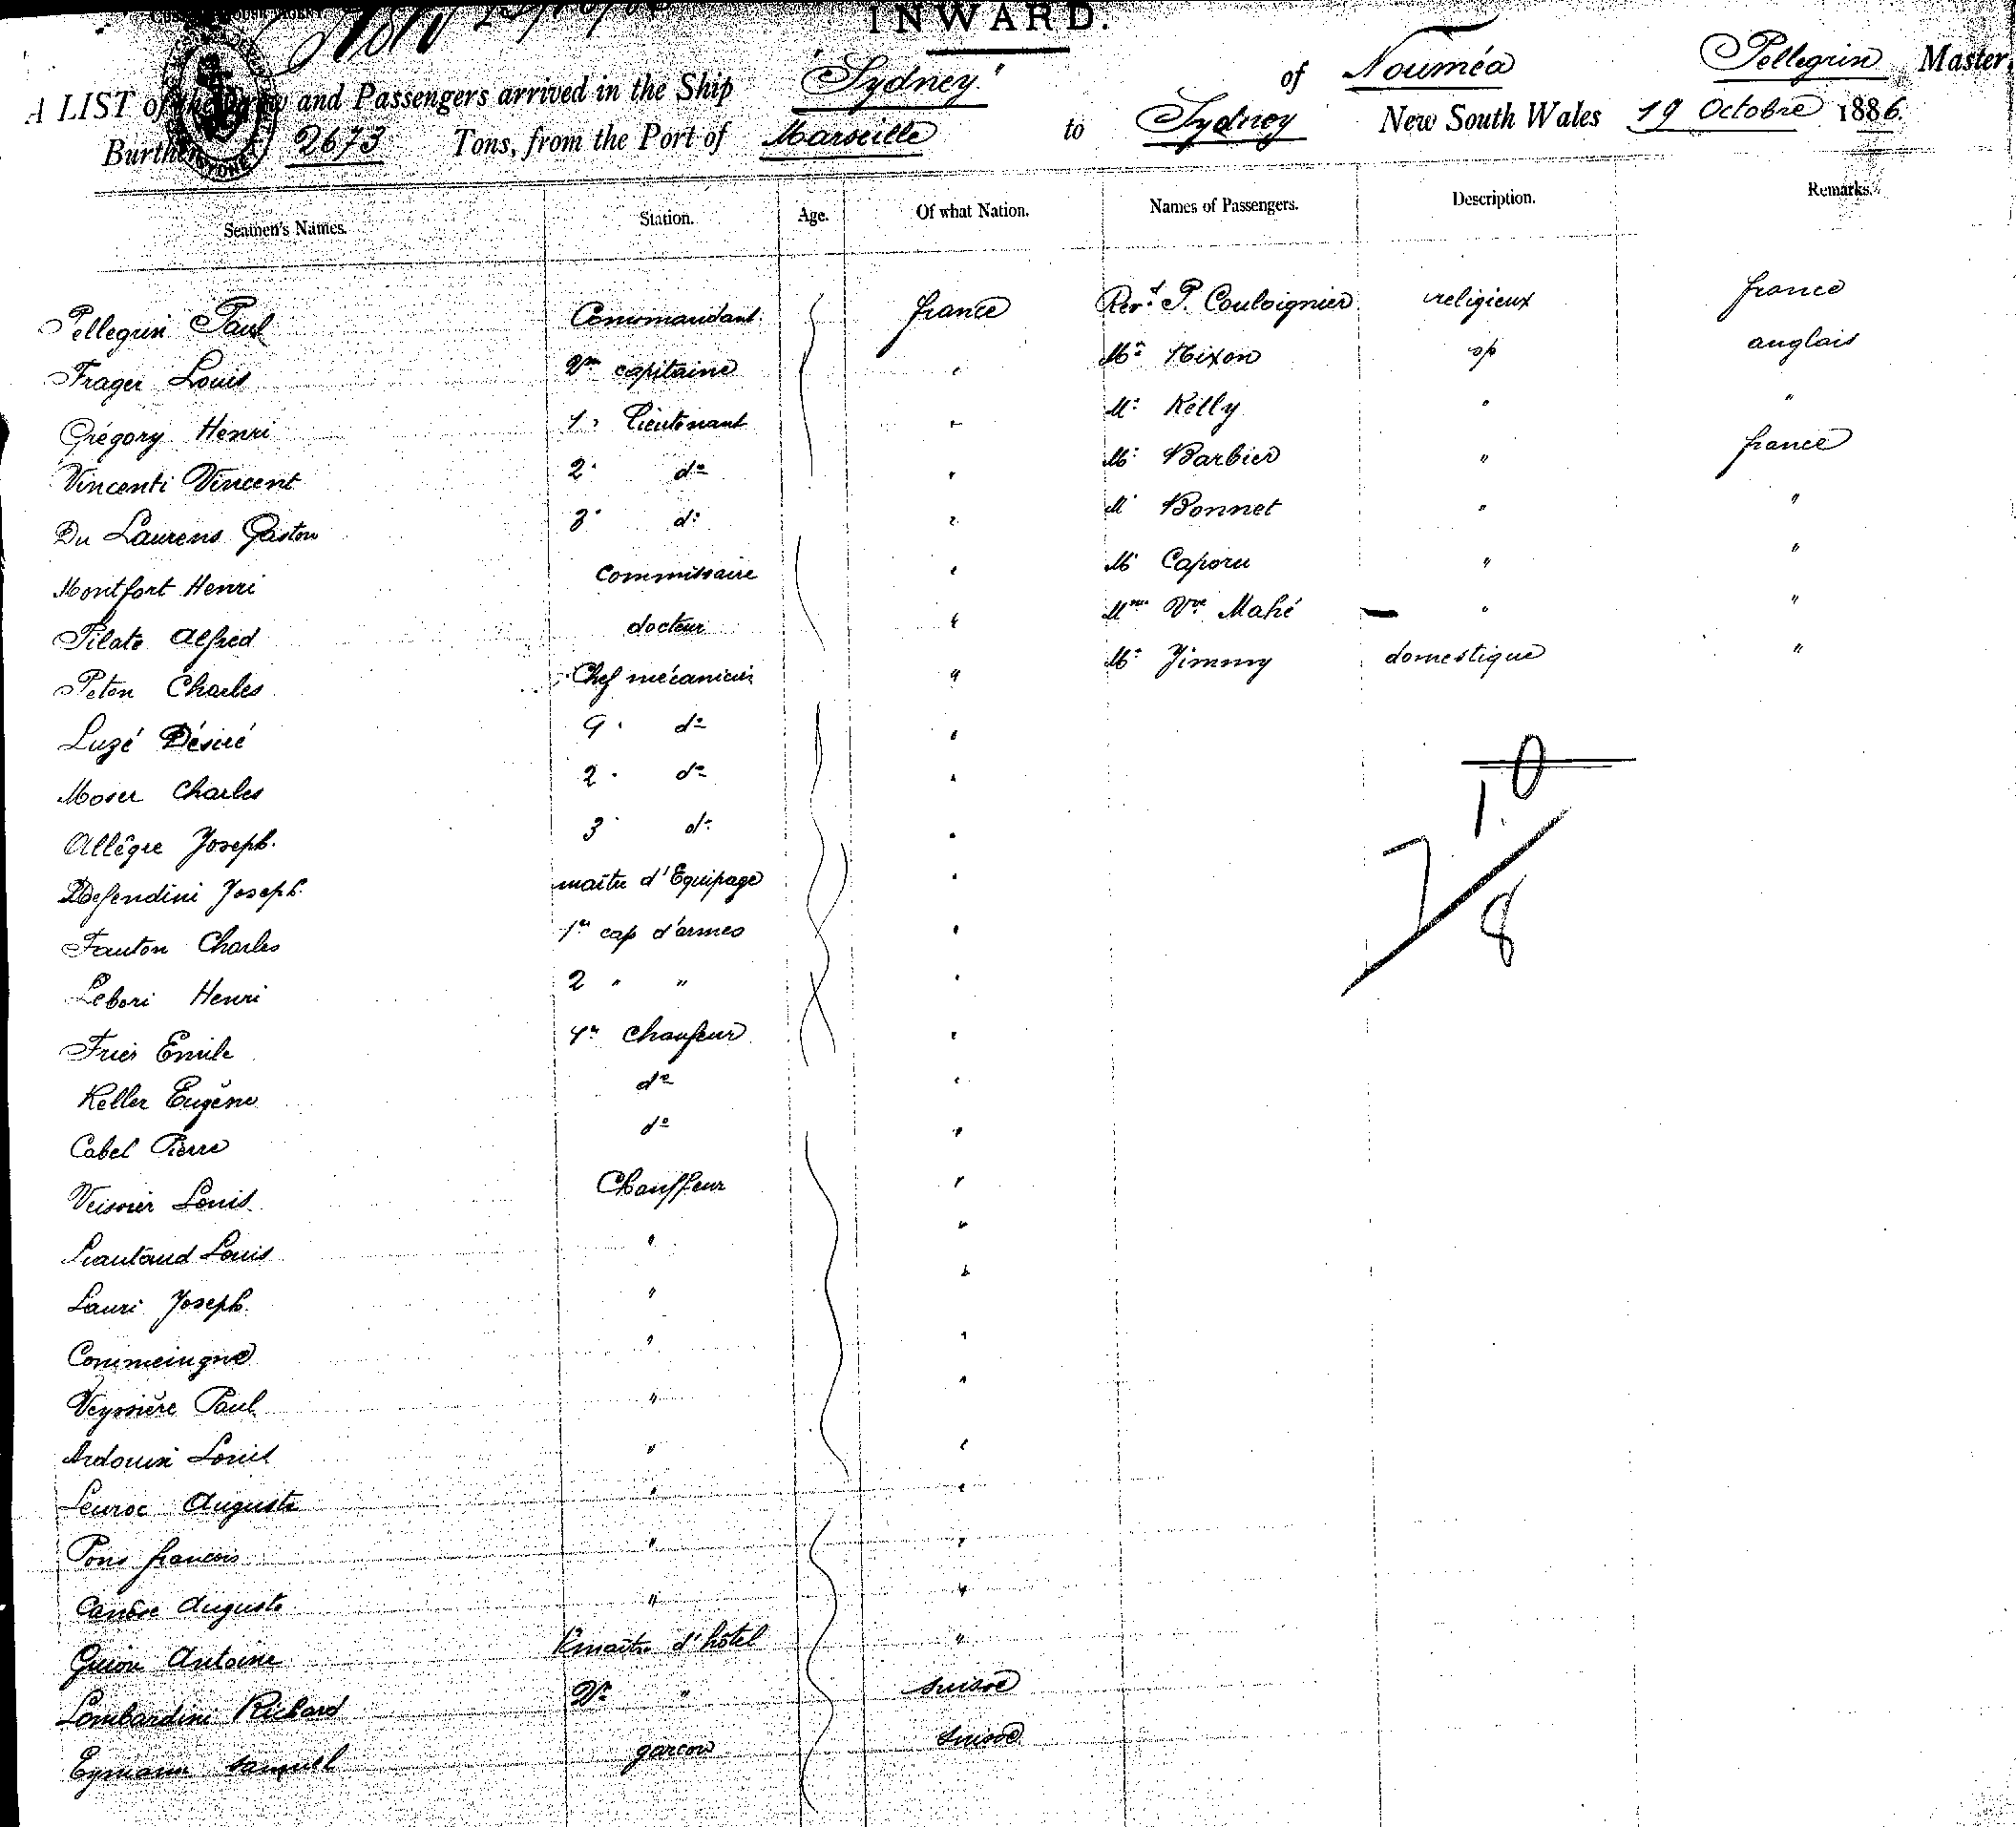 INWARD.
A LIST of the Crew and Passengers arrived in the Ship "Sydney" of Nouméa Pellegrin Master,
Burthen 2673 Tons, from the Port of Marseille to Sydney New South Wales 19 Octobre 1886.
Seamen's Names. Station. Age. Of what Nation. Names of Passengers. Description. Remarks.
Pellegrin Paul Commandant france Rev.d P. Couloignier religieux france
Frager Louis 2me capitaine " Mr Nixon s/p anglais
Grégory Henri 1r Lieutenant " Mr Kelly " "
Vincenti Vincent 2. do " Mr Barbier " france
Du Laurens Gaston 3. do " Mr Bonnet " "
Montfort Henri Commissaire " Mr Caporu " "
Pilate Alfred docteur " Mme Vve Mahé " "
Peton Charles Chef mécanicien " Mr Jimmy domestique "
Luzé Désiré do "
Moser Charles 2. do "
Allêgre Joseph. 3 do "
Defendini Joseph. maître d'Equipage "
Fauton Charles 1er cap d'armes "
Lebori Henri 2 " " "
Friès Emile 1er Chaufeur "
Keller Eugène do "
Cabel Pierre do "
Veisrier Louis Chauffeur "
Liautaud Louis " "
Lauri Joseph. " "
Commeingne " "
Veyssière Paul " "
Ardouin Louis " "
Leuroc Auguste " "
Pons francois " "
Auguste " "
Guion Antoine 1r maître d'hôtel "
Lombardini Richard 2me " suisse
Eymann Samuell garcon suisse
10
7/8